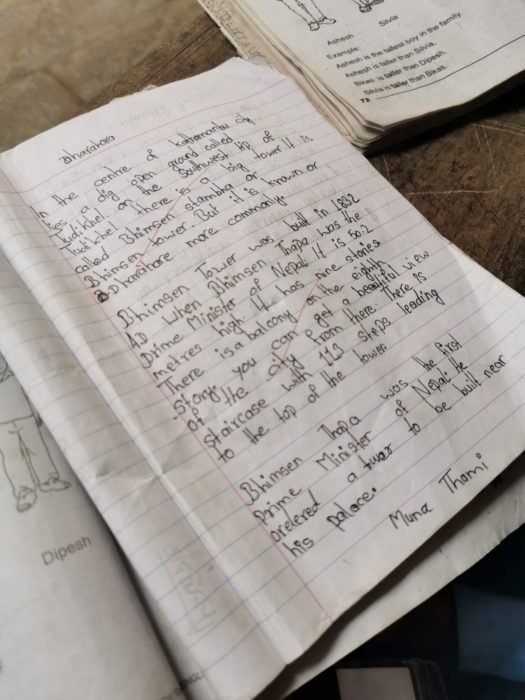 Dharahara
In the centre of kathamandu city
lies a dig open ground called
Tudikhel. On the Southwest tip of
Tudikhel There is a big tower It is
called Bhimsen stambha or
Bhimsen tower. But it is known or
Dharahare more commonly
Bhimsen Tower was built in 1832
AD when Bhimsen Thapa was the
Prime Minister of Nepal. It is 50.2
metres high. It has nine stories
There is a balcony on the eighth
story. you can get a beautiful view
of the city from there There is
staircase with 113 steps leading
to the top of the tower
Bhimsen Thapa was the first
prime Minister of Nepal. He
orelered a twar to be built near
his palace.
Muna Thami
Ashesh Silvia
Example:
Ashesh is the tallest boy in the family.
Ashesh is taller than Silvia.
Bikas is taller than Dipesh.
Silvia is taller than Bikas.
72
Dipesh